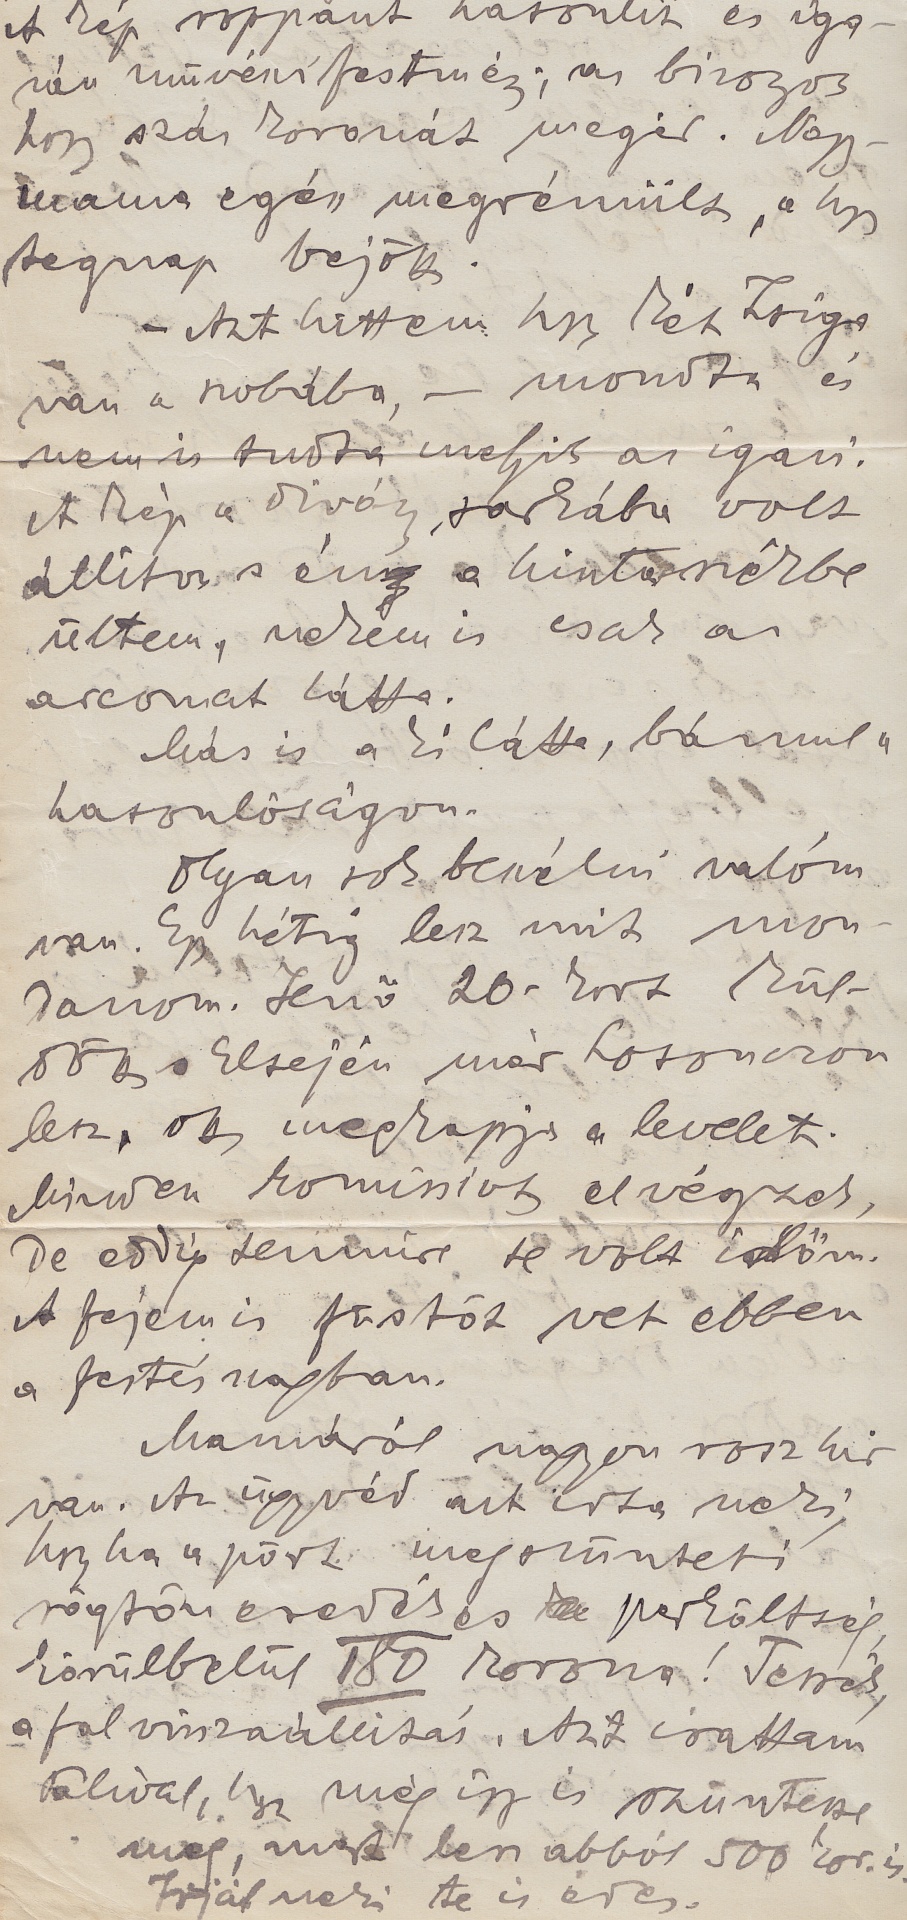 A kép roppant hasonlit és iga-
zán müvészi festmény, az bizonyos
hogy száz koronát megér. Nagy-
mama egész megrémült, a hogy
tegnap bejött.
– Azt hittem hogy két Zsiga
van a szobába, – mondta és
nem is tudta melyik az igazi.
A kép a divány sarkába volt
állitva s én a hintaszékbe
ültem, nekem is csak az
arcomat látta.
Más is a ki látta, bámul a
hasonlóságon.
Olyan sok beszélni valóm
van. Egy hétig lesz mit mon-
danom. Jenő 20- kort kül-
dött s Elsején már Losonczon
lesz, ott megkapja a levelet.
Minden komissiót elvégzek,
de eddig semmire se volt időm.
A fejem is füstöt vet ebben
a festésszagban.
Mamáról nagyon rosz hir
van. Az ügyvéd azt irta neki,
hogy ha a pört megszünteti
rögtön esedékes perköltség,
körülbelül 180 korona! Tessék,
a fal visszaállitás. Azt irattam
Tálival, hogy még igy is szüntesse
meg, mert lesz abból 500 kor. is.
Irjál neki te is édes.